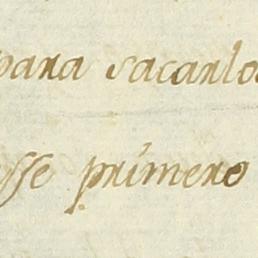 para sacarlos
sse primero